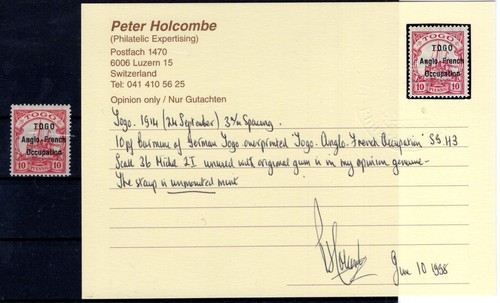 Peter Holcombe
(Philatelic Expertising)
Postfach 1470
6006 Luzern 15
Switzerland
Tel: 041 410 56 25
Opinion only / Nur Gutachten
Togo. 1914 (24 September) 3 Spacing
10pf carmine of German Togo overprinted "Togo. Anglo-French Occupation" SG. H3
Scott 36 Michel 2I unused with original gum is in my opinion genuine -
The stamp is unmounted mint
June 10 1998
TOGO
TOGO
Anglo-French
Occupation
10 PFENNIG 10
TOGO
TOGO
Anglo-French
Occupation
10 PFENNIG 10